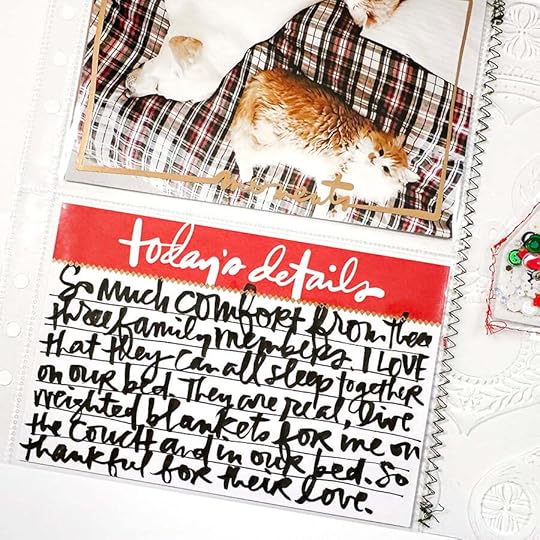 moments
today's details
So much comfort from these
three family members. I LOVE
that they can all sleep together
on our bed. They are real, live
weighted blankets for me on
the couch and in our bed. So
thankful for their love.